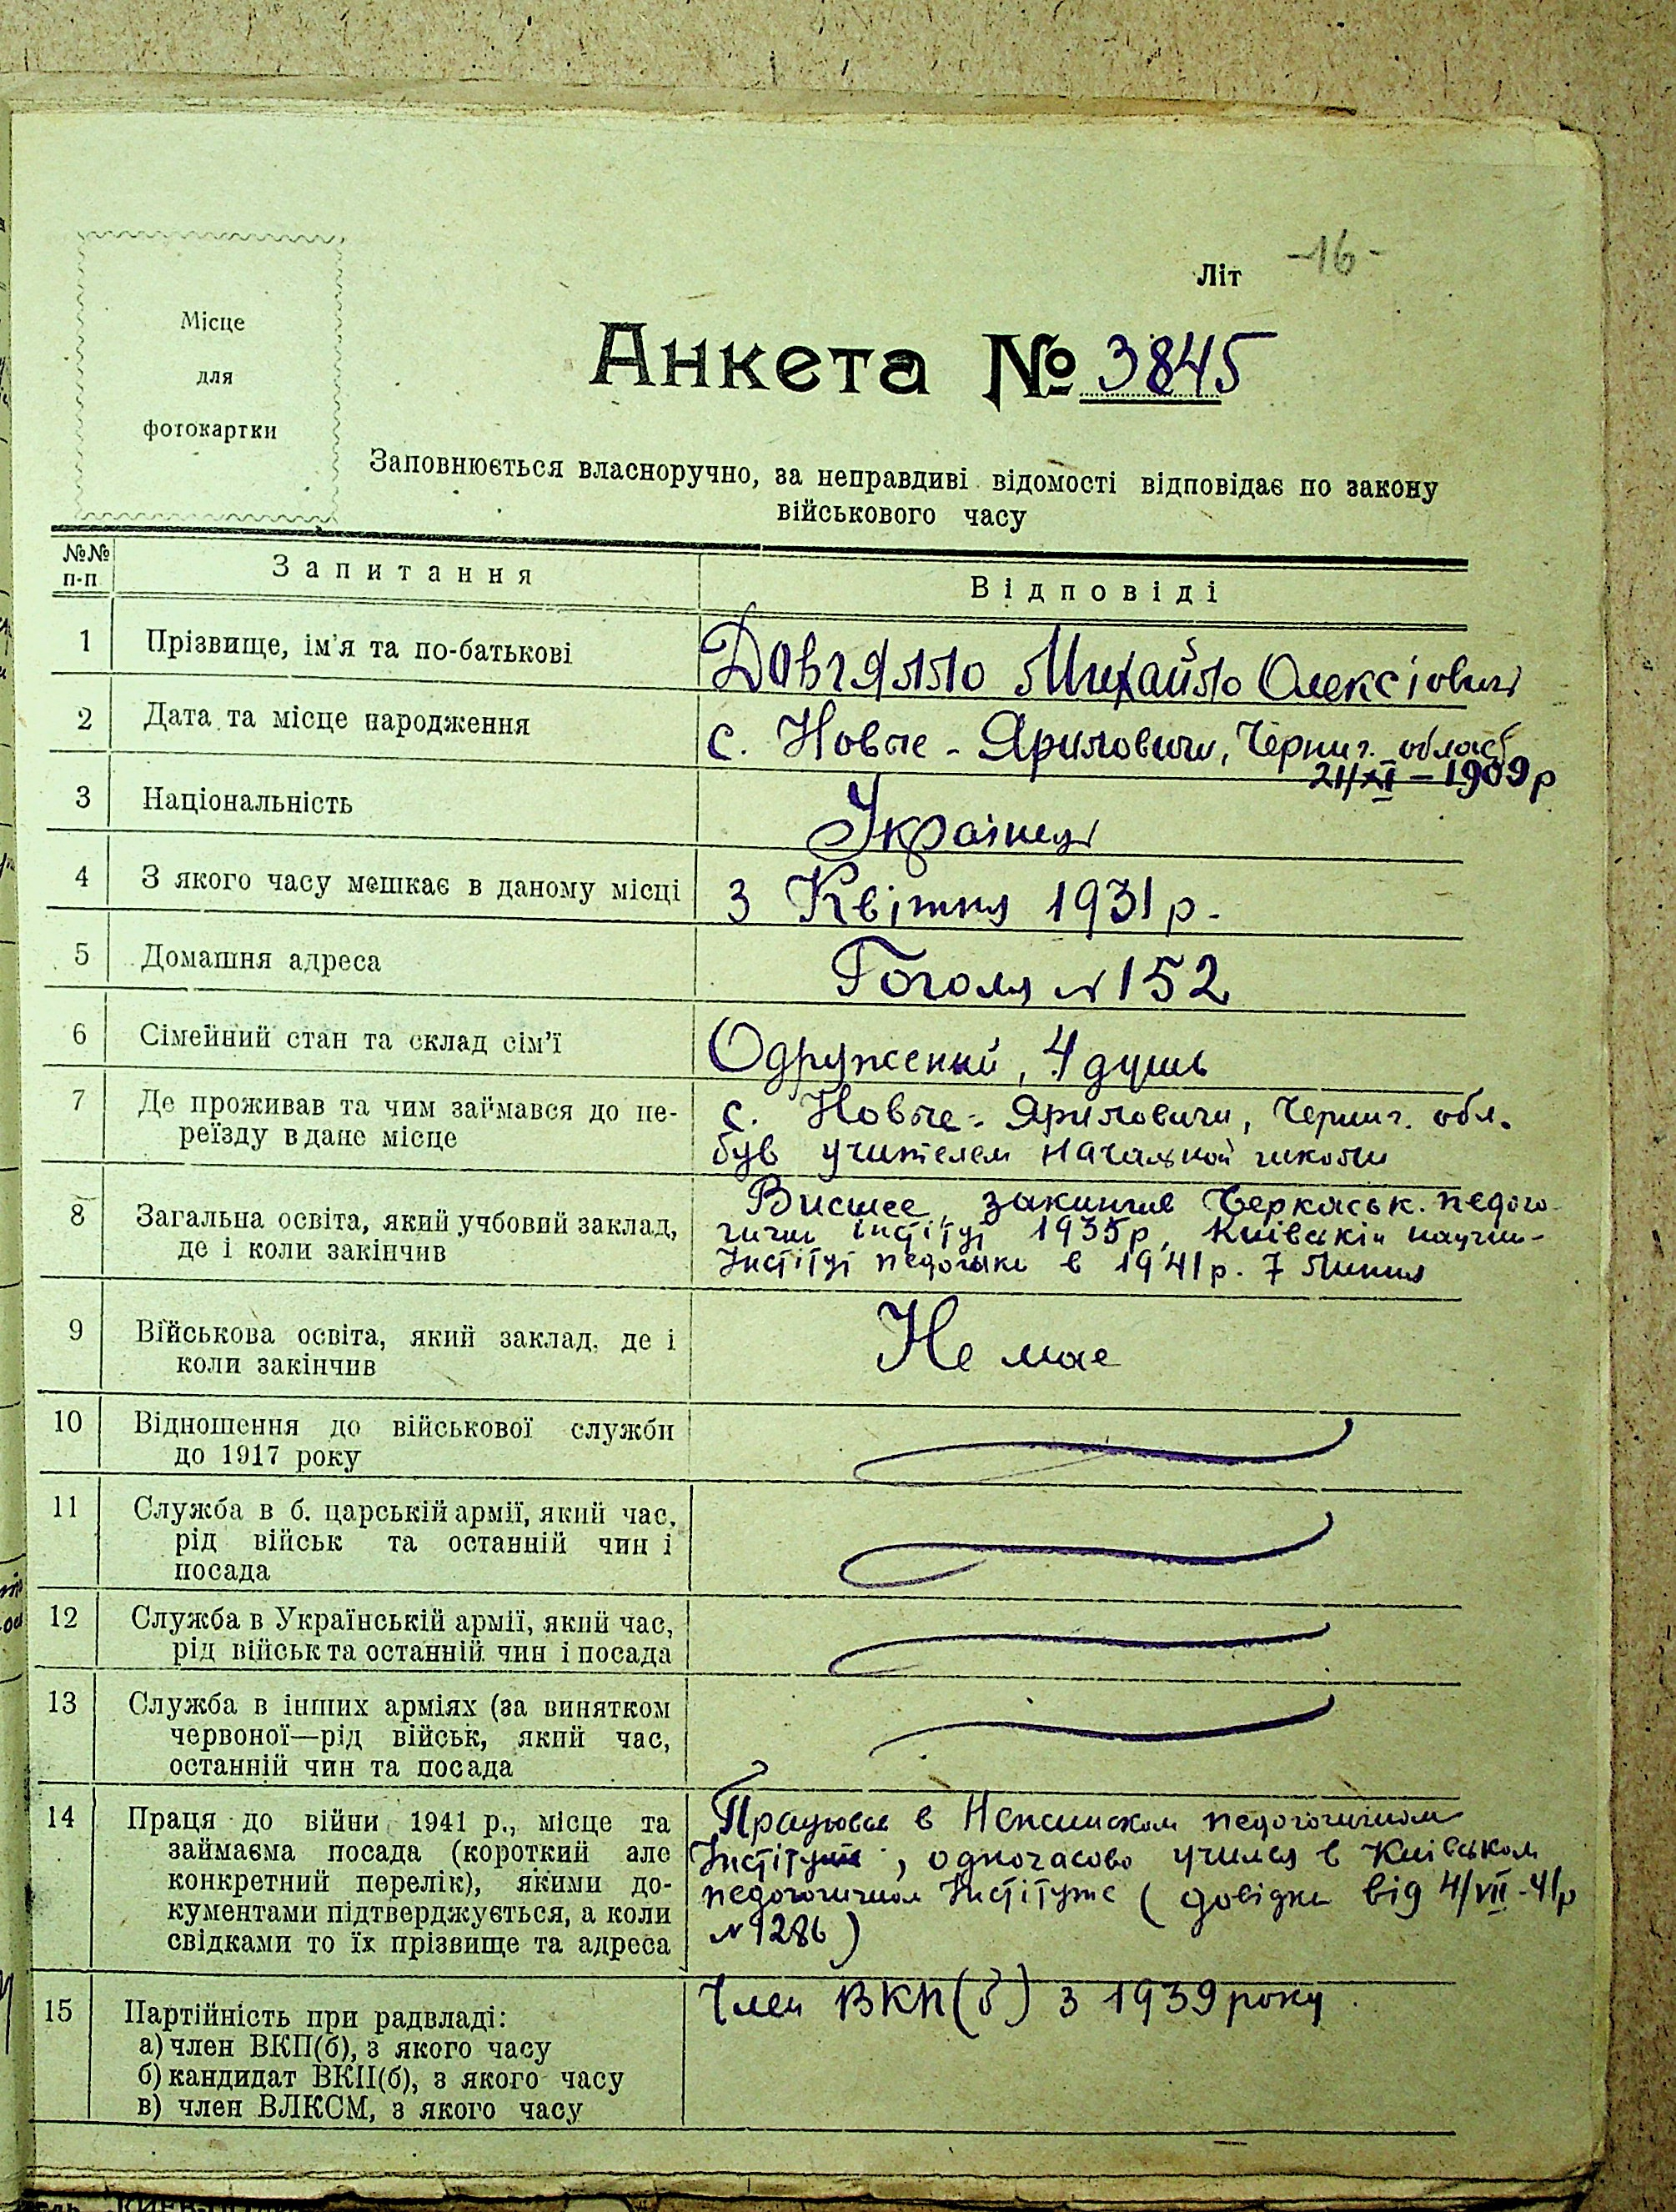 Літ -16-
Місце
для
фотокартки
Анкета № 3845
Заповнюється власноручно, за неправдиві відомості відповідає по закону
військового часу
№№ п-п Запитання Відповіді
1 Прізвище, ім'я та по-батькові Довгялло Михайло Олексіович
2 Дата та місце народження с. Новые-Яриловичи, Черниг. област
24/XI-1909р
3 Національність Українец
4 З якого часу мешкає в даному місці З Квітня 1931 р.
5 Домашня адреса Гоголя №152
6 Сімейний стан та склад сім'ї Одружений, 4 душь
7 Де проживав та чим займався до пе-
реїзду в дане місце
с. Новые-Яриловичи, Черниг. обл.
був учителем начальной школы
8 Загальна освіта, який учбовий заклад,
де і коли закінчив
Висшее, закинчив Черкаськ. педаго-
гичн інстітут 1935р, Київскін научн-
Інстітут педогыки в 1941р. 7 Липня
9 Військова освіта, який заклад, де і
коли закінчив
Не мае
10 Відношення до військової служби
до 1917 року
11 Служба в б. царській армії, який час,
рід військ та останній чин і
посада
12 Служба в Українській армії, який час,
рід військ та останній чин і посада
13 Служба в інших арміях (за винятком
червоної—рід військ, який час,
останній чин та посада
14 Праця до війни 1941 р., місце та
займаєма посада (короткий але
конкретний перелік), якими до-
кументами підтверджується, а коли
свідками то їх прізвище та адреса
Працював в педогогичном
Інстітуті, одночасово учився в Київськом
педогогичном Інстітуте (довідка від 4/VII-41р
№1286)
15 Партійність при радвладі:
а) член ВКП(б), з якого часу
б) кандидат ВКП(б), з якого часу
в) член ВЛКСМ, з якого часу
Член ВКП(б) з 1939 року